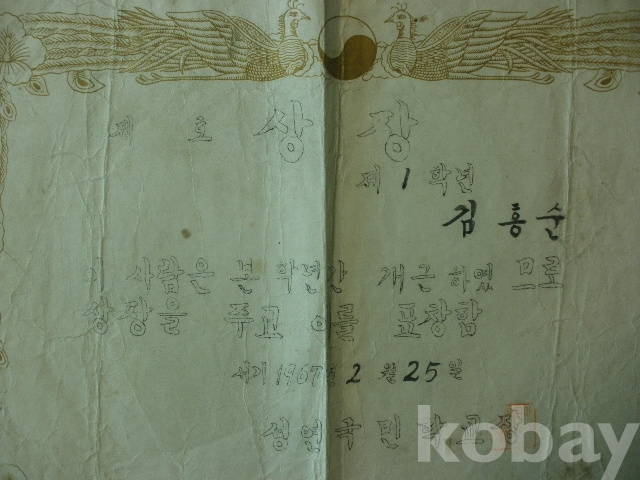 제 호 상장
제 1 학년
김흥순
이 사람은 본 학년간 개근 하였므로
상장을 주고 이를 표창함
서기 1967년 2월 25일
성연국민학교장
kobay